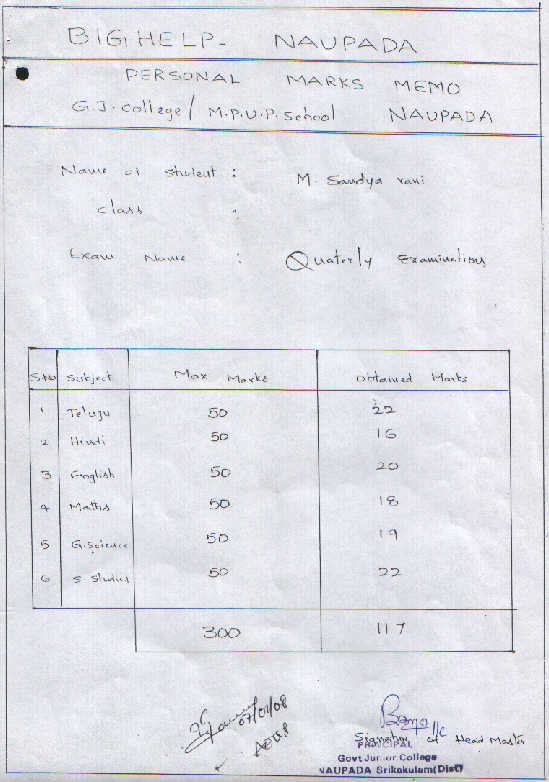 BIGHELP- NAUPADA
PERSONAL MARKS MEMO
G.J. College / M.P.U.P. School NAUPADA
Name of student : M. Sandya rani
class :
Exam Name : Quaterly Examinations
S.No Subject Max Marks Obtained Marks
1 Telugu 50 22
2 Hindi 50 16
3 English 50 20
4 Maths 50 18
5 G.Science 50 19
6 S. Studies 50 22
300 117
07/01/08
Signature of Head Master
PRINCIPAL
Govt Junior College
NAUPADA Srikakulam(Dist)